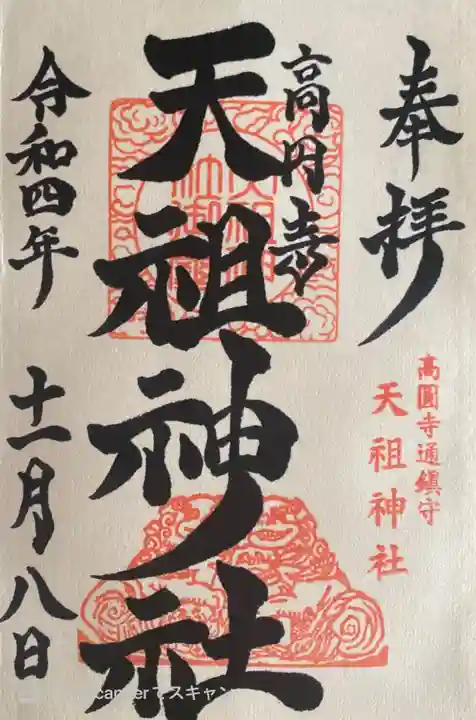 奉拝
高圓寺通鎮守
天祖神社
高円寺
天祖神社
令和四年
十一月八日